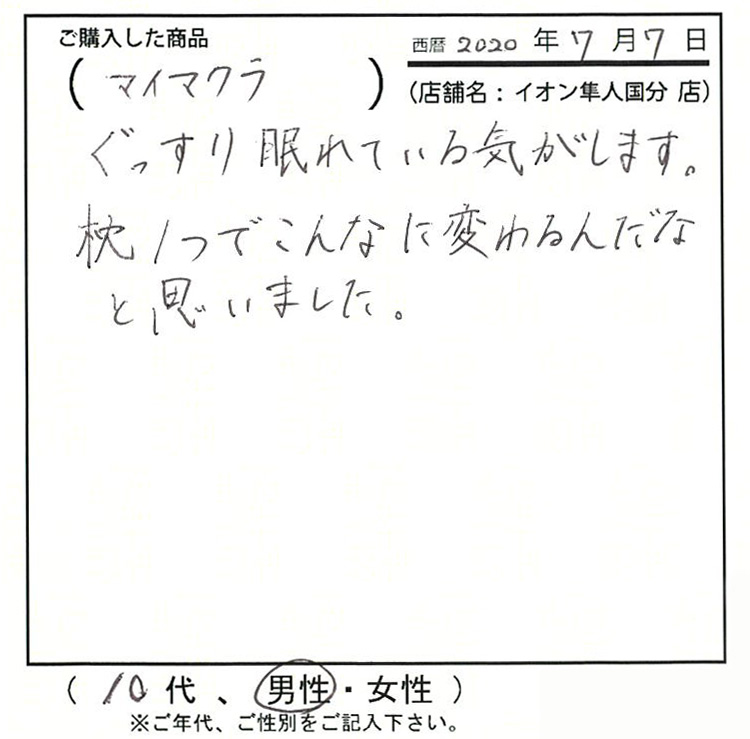 ご購入した商品
西暦 2020 年 7 月 7 日
(マイマクラ)
(店舗名：イオン隼人国分 店)
ぐっすり眠れている気がします。
枕1つでこんなに変わるんだな
と思いました。
(10代、男性・女性)
※ご年代、ご性別をご記入下さい。